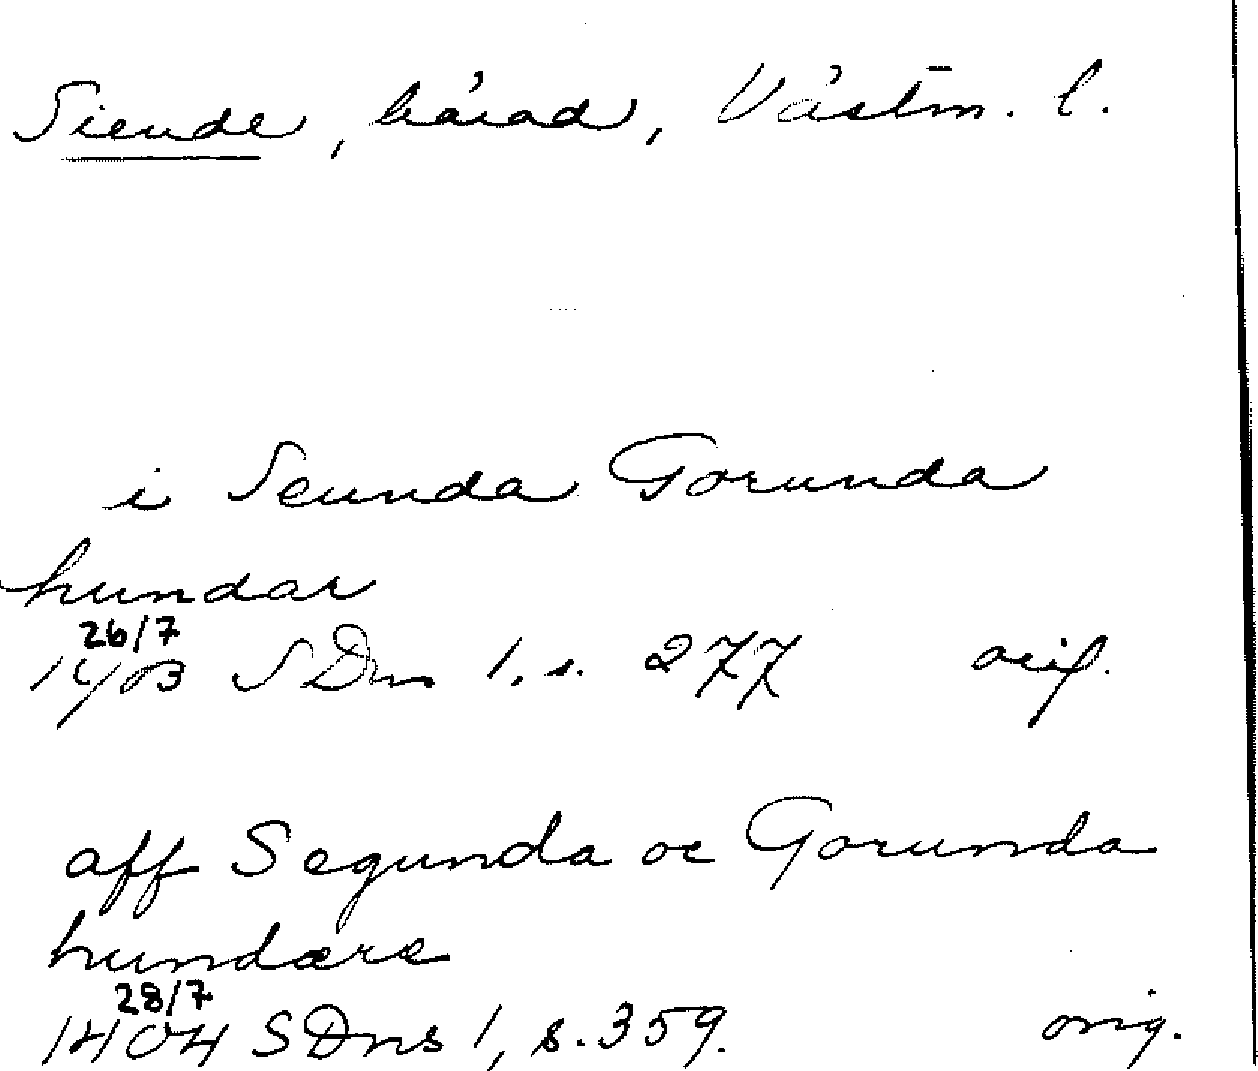 Siende, härad, Västm. l.
i Seunda Gorunda
hundar
26/7
1403 SDns 1, s. 277 orig.
aff Segunda oc Gorunda
hundære
28/7
1404 SDns 1, s. 359. orig.